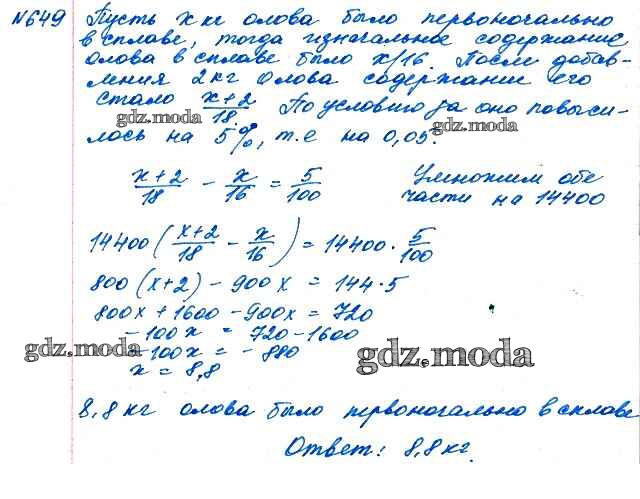 №649 Пусть x кг олова было первоначально
в сплаве, тогда изначальное содержание
олова в сплаве было x/16. После добав-
ления 2 кг олова содержание его
стало (x+2)/18. По условию за оно повыси-
gdz.moda gdz.moda
лось на 5%, т.е на 0,05.
(x+2)/18 - x/16 = 5/100 Умножим обе
части на 14400
14400((x+2)/18 - x/16) = 14400 · 5/100
800(x+2) - 900x = 144·5
800x + 1600 - 900x = 720
-100x = 720-1600
gdz.moda gdz.moda
-100x = -880
x = 8,8
8,8 кг олова было первоначально в сплаве
Ответ: 8,8 кг.